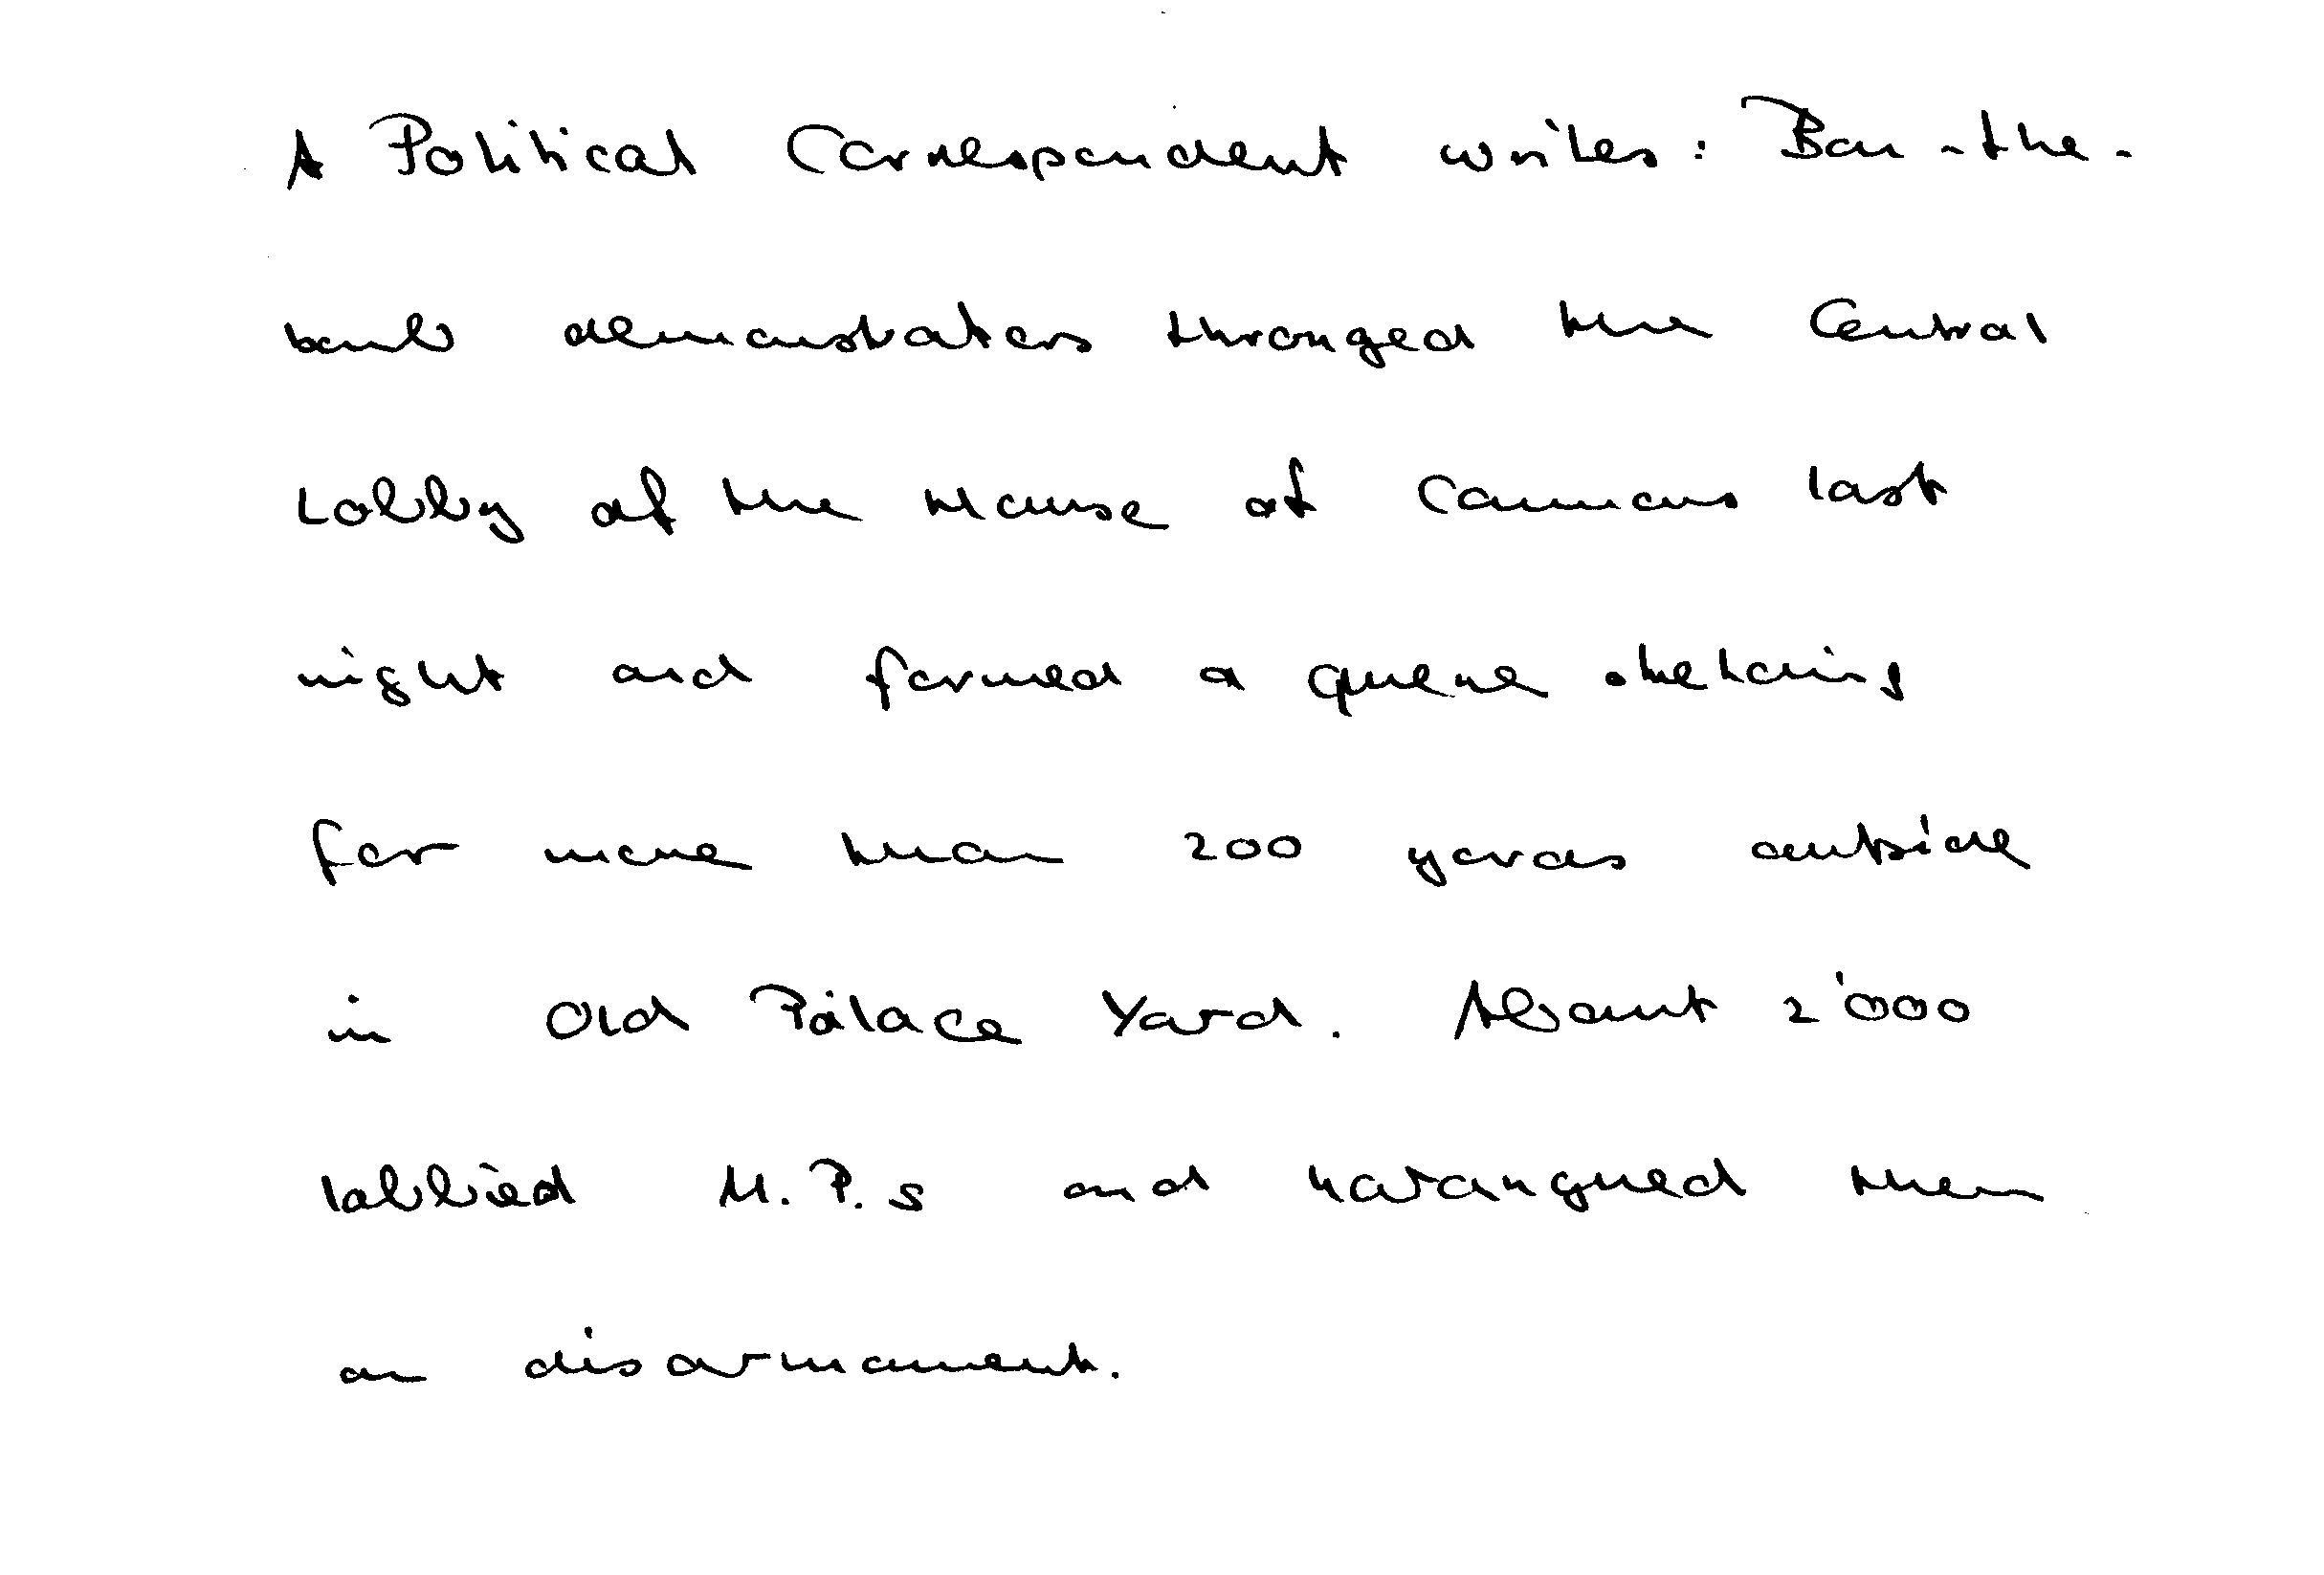 A Political Correspondent writes: Ban-the-
bomb demonstrators thronged the Central
Lobby of the House of Commons last
night and formed a queue stretching
for more than 200 yards outside
in Old Palace Yard. About 2'000
lobbied M.P.s and harangued them
on disarmament.